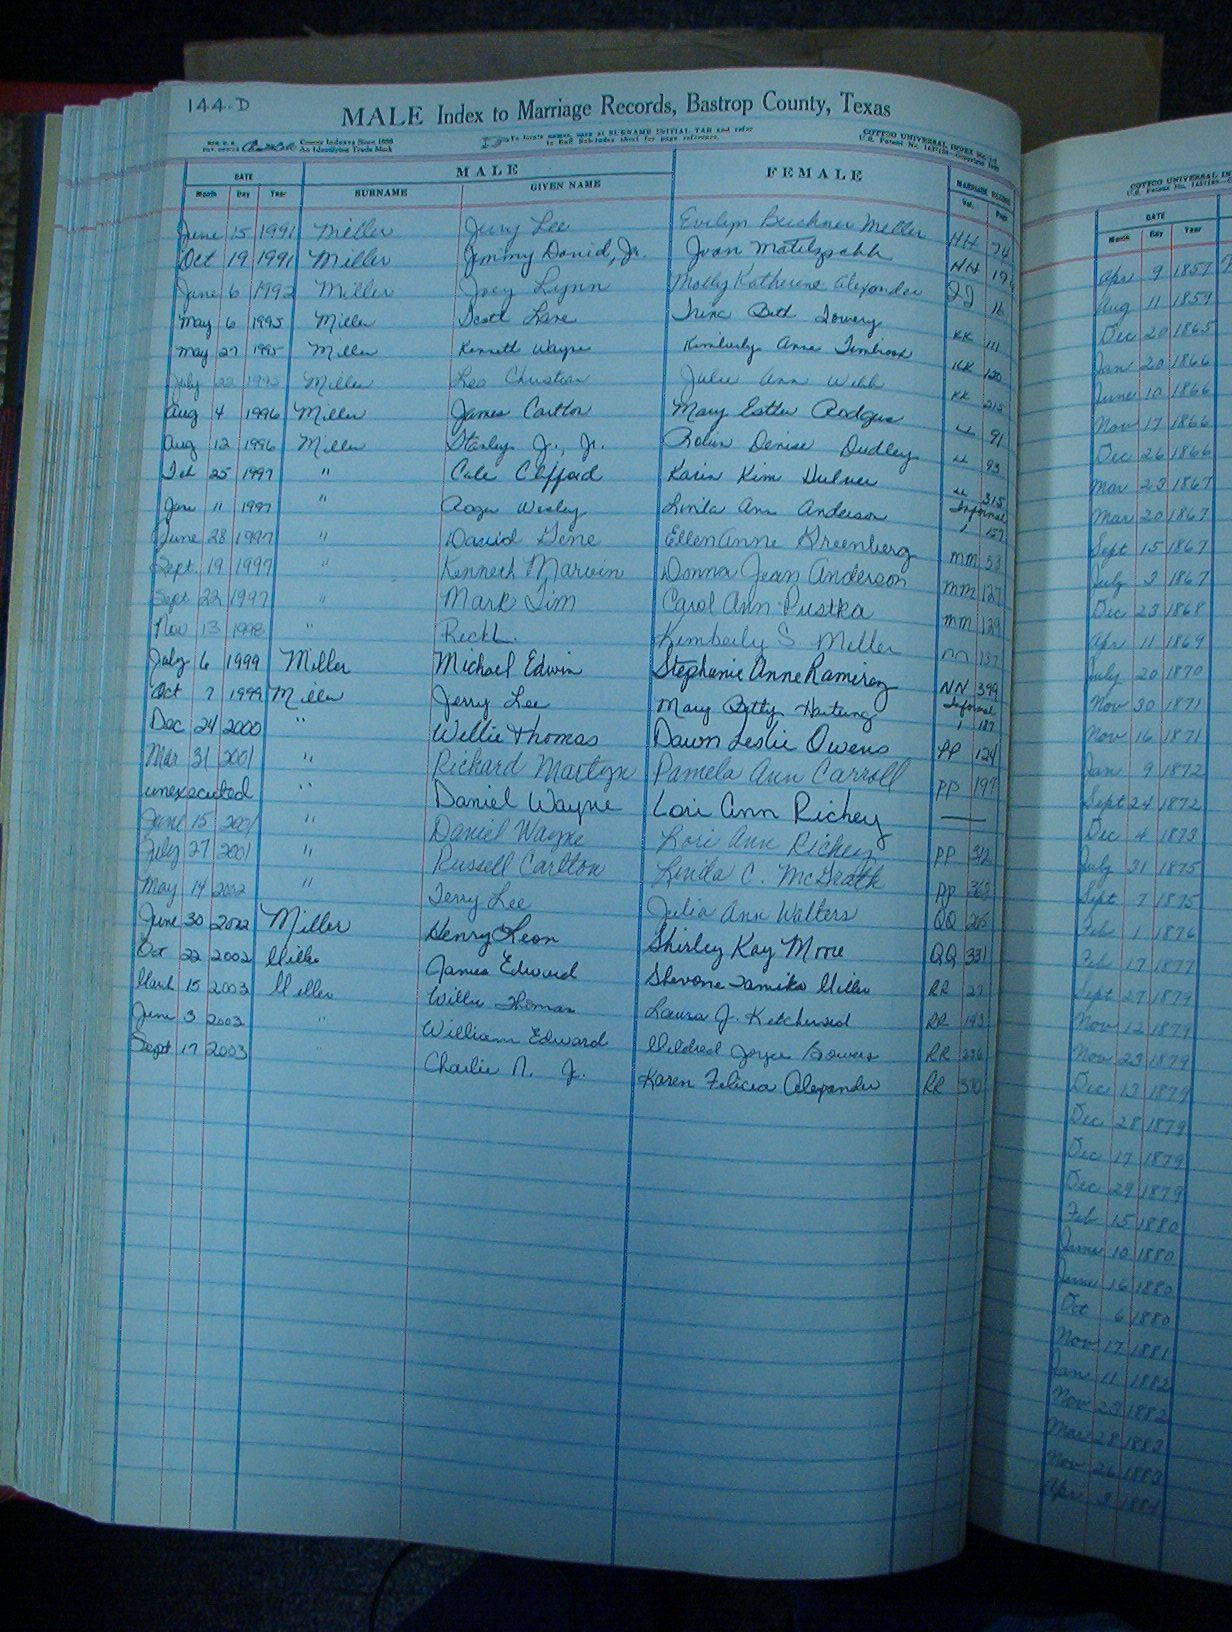 144-D
MALE Index to Marriage Records, Bastrop County, Texas
County Indexes Since 1888
An Identifying Trade Mark
To locate names, open at SURNAME INITIAL TAB and refer
to Sub-Index sheet for page reference.
COTTCO UNIVERSAL INDEX
DATE MALE FEMALE MARRIAGE RECORD
Month Day Year SURNAME GIVEN NAME Vol. Page
June 15 1991 Miller Jerry Lee Evelyn Buishner Miller HH 74
Oct 19 1991 Miller Jimmy David, Jr. Joan HH
June 6 1992 Miller Joey Lynn Molly Katherine Alexander JJ 16
May 6 1995 Miller Scott Lane Trina Beth Towery KK 111
May 27 1995 Miller Kenneth Wayne Kimberly Anne Timbrook KK 120
July 22 1995 Miller Leo Christian Julie Ann Webb KK 212
Aug 4 1996 Miller James Carlton Mary Esther Rodgers LL 91
Aug 12 1996 Miller Stanley J., Jr. Robin Denise Dudley LL 93
Feb 25 1997 " Cale Clifford Karin Kim Hulner LL 315
Jan 11 1997 " Roger Wesley Linda Ann Anderson Informal 1 157
June 28 1997 " David Gene Ellen Anne Greenberg MM 53
Sept 19 1997 " Kenneth Marvin Donna Jean Anderson MM 127
Sept 22 1997 " Mark Tim Carol Ann Pustka MM 129
Nov 13 1998 " Rick L. Kimberly S. Miller NN 137
July 6 1999 Miller Michael Edwin Stephanie Anne Ramirez NN 399
Oct 7 1999 Miller Jerry Lee Mary Betty Hartung Informal 1 187
Dec 24 2000 " Willie Thomas Dawn Leslie Owens PP 124
Mar 31 2001 " Richard Martyn Pamela Ann Carroll PP 197
unexecuted " Daniel Wayne Lori Ann Richey —
June 15 2001 " Daniel Wayne Lori Ann Richey PP 312
July 27 2001 " Russell Carlton Linda C. McGrath PP 362
May 14 2002 " Terry Lee Julia Ann Walters QQ 265
June 30 2002 Miller Henry Leon Shirley Kay Moore QQ 331
Oct 22 2002 Miller James Edward Shevone Tamika Miller RR 27
March 15 2003 Miller Willie Thomas Laura J. Ketchersid RR 193
June 3 2003 " William Edward Mildred Joyce Bowers RR 236
Sept 17 2003 " Charlie N. Jr. Karen Felicia Alexander RR 370
COTTCO UNIVERSAL IN
DATE
Month Day Year
Apr 9 1857
Aug 11 1859
Dec 20 1865
Jan 20 1866
June 10 1866
Nov 17 1866
Dec 26 1866
Mar 23 1867
Mar 20 1867
Sept 15 1867
July 2 1867
Dec 23 1868
Apr 11 1869
July 20 1870
Nov 30 1871
Nov 16 1871
Jan 9 1872
Sept 24 1872
Dec 4 1873
July 31 1875
Sept 7 1875
Feb 1 1876
Feb 17 1877
Sept 27 1879
Nov 12 1879
Nov 23 1879
Dec 13 1879
Dec 28 1879
Dec 17 1879
Dec 29 1879
Feb 15 1880
June 10 1880
June 16 1880
Oct 6 1880
Nov 17 1881
Jan 11 1882
Nov 23 1882
Mar 28 1883
Nov 26 1883
Apr 3 1884